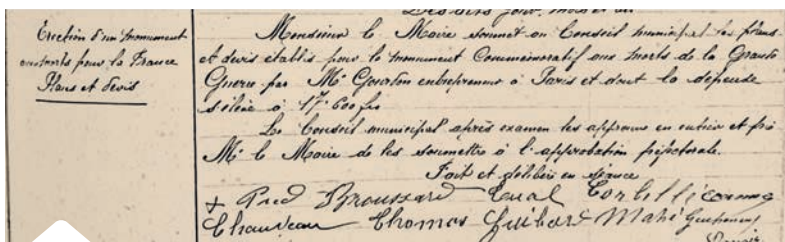 Erection d'un monument
aux morts pour la France
Plans et devis
Les dits jour, mois et an
Monsieur le Maire soumet au Conseil municipal les plans
et devis établis pour le monument Commémoratif aux morts de la Grande
Guerre par Mr Gourdon entrepreneur à Paris et dont la dépense
s'élève à 17.600 frs
Le Conseil municipal après examen les approuve en entier et prie
Mr le Maire de les soumettre à l'approbation préfectorale.
Fait et délibéré en séance
Broussard
Chauveau Thomas Guibard Mahé